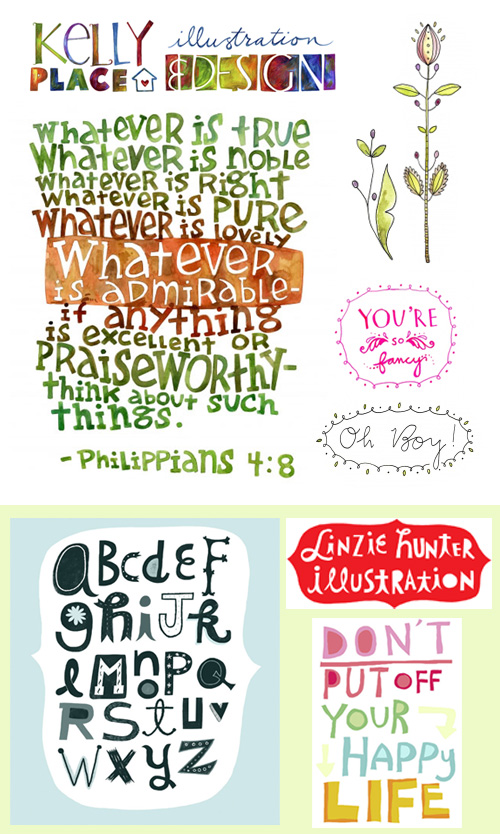 KELLY illustration
PLACE &DESIGN
Whatever is true
Whatever is noble
whatever is Right
whatever is PURE
Whatever is lovely
Whatever
is admirable-
if anything
is excellent or
PRaiseworthy-
think about such
things.
-Philippians 4:8
YOU'RE
so
fancy
Oh Boy!
aBcdeF
ghiJk
lMnoPQ
RStuv
wxyZ
Linzie hunter
illustration
DON'T
PUT OFF
YOUR
HAPPy
LIFE